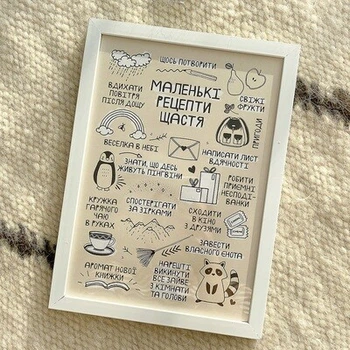 ЩОСЬ ПОТВОРИТИ
МАЛЕНЬКІ
РЕЦЕПТИ
ЩАСТЯ
ВДИХАТИ
ПОВІТРЯ
ПІСЛЯ ДОЩУ
СВІЖІ
ФРУКТИ
ПРИГОДИ
ВЕСЕЛКА В НЕБІ
НАПИСАТИ ЛИСТ
ВДЯЧНОСТІ
ЗНАТИ, ЩО ДЕСЬ
ЖИВУТЬ ПІНГВІНИ
РОБИТИ
ПРИЄМНІ
НЕСПОДІ-
ВАНКИ
КРУЖКА
ГАРЯЧОГО
ЧАЮ
В РУКАХ
СПОСТЕРІГАТИ
ЗА ЗІРКАМИ
СХОДИТИ
В КІНО
З ДРУЗЯМИ
ЗАВЕСТИ
ВЛАСНОГО ЄНОТА
АРОМАТ НОВОЇ
КНИЖКИ
НАРЕШТІ
ВИКИНУТИ
ВСЕ ЗАЙВЕ
З КІМНАТИ
ТА ГОЛОВИ